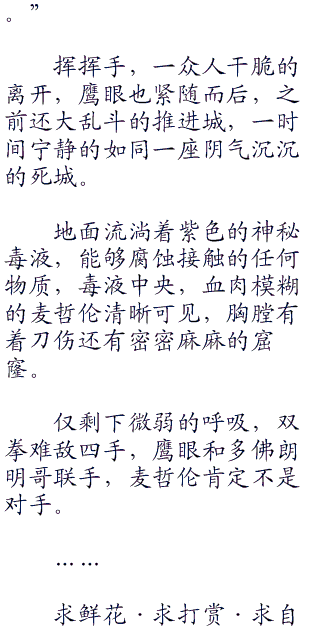 。”
挥挥手，一众人干脆的
离开，鹰眼也紧随而后，之
前还大乱斗的推进城，一时
间宁静的如同一座阴气沉沉
的死城。
地面流淌着紫色的神秘
毒液，能够腐蚀接触的任何
物质，毒液中央，血肉模糊
的麦哲伦清晰可见，胸膛有
着刀伤还有密密麻麻的窟
窿。
仅剩下微弱的呼吸，双
拳难敌四手，鹰眼和多佛朗
明哥联手，麦哲伦肯定不是
对手。
……
求鲜花·求打赏·求自